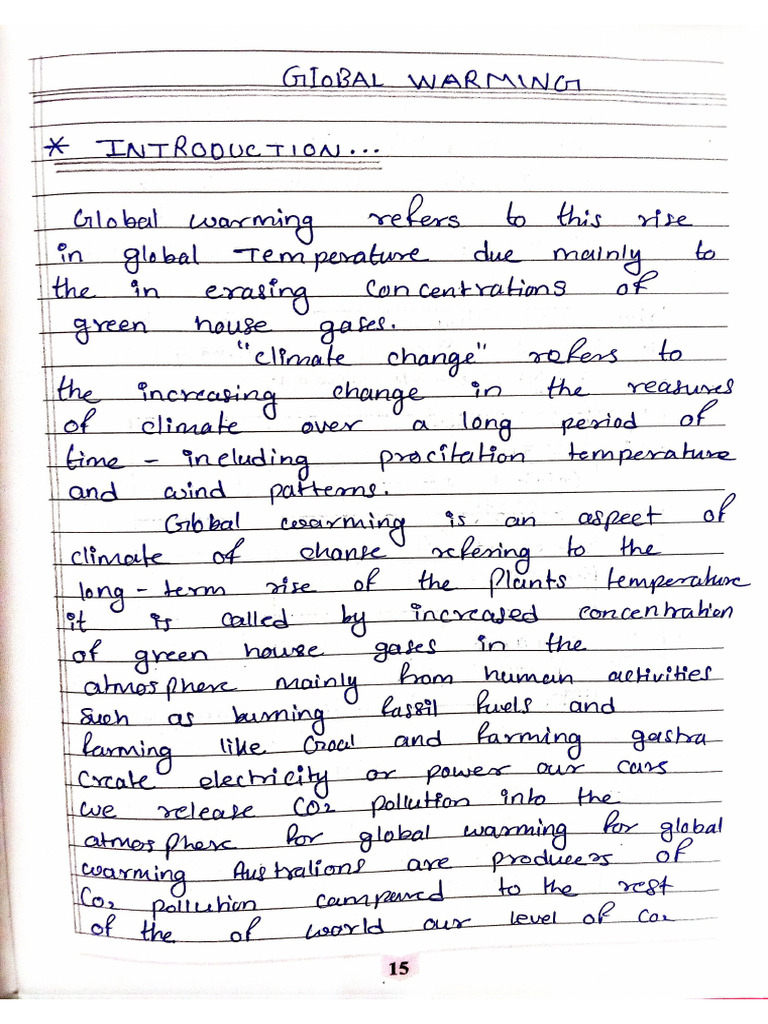 GlOBAL WARMING
* INTRODUCTION...
Global warming refers to this rise
in global Temperature due mainly to
the in erasing concentrations of
green house gases.
"climate change" refers to
the increasing change in the reasures
of climate over a long period of
time - including procitation temperature
and wind patterns.
Global warming is an aspect of
climate of change refering to the
long - term rise of the Plants temperature
it is called by increased concentration
of green house gases in the
atmosphere mainly from human activities
such as burning fassil fuels and
farming like Croal and farming gastra
Create electricity or power our cars
we release CO2 pollution into the
atmosphere for global warming for global
warming Australions are producers of
CO2 pollution campured to the rest
of the of world our level of CO2
15